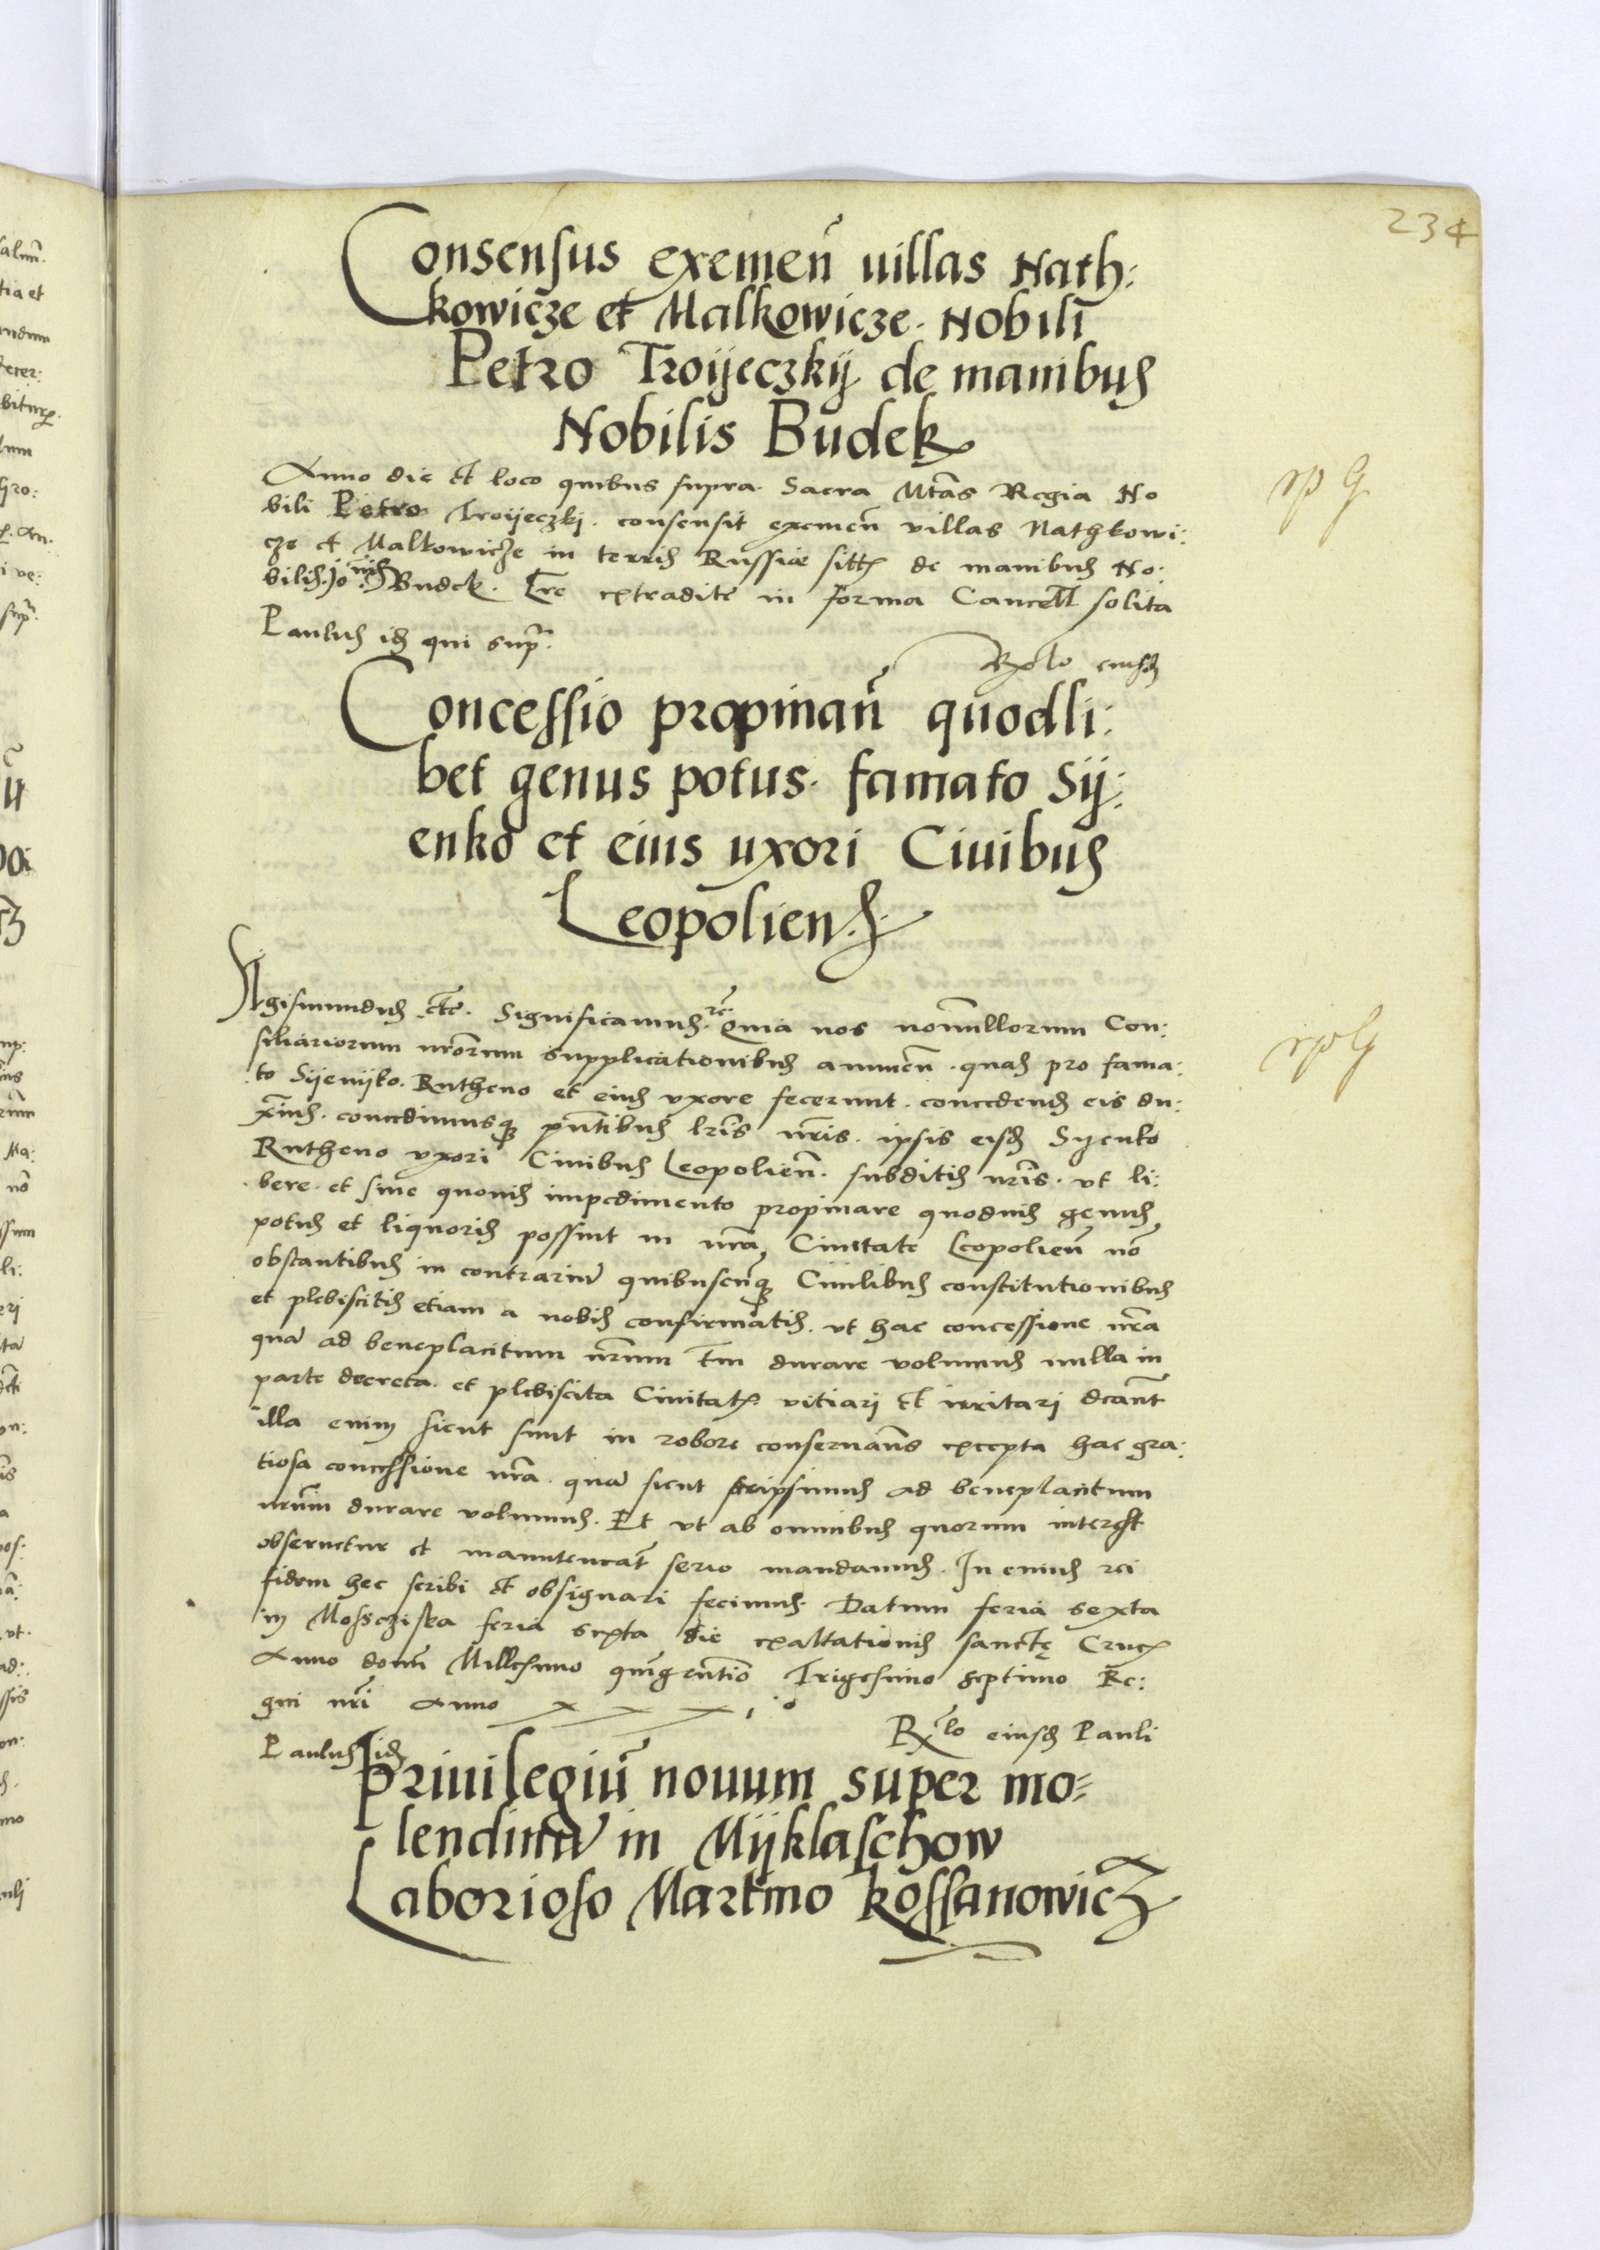 234
Consensus exemeñ uillas Nath:
kowicze et Malkowicze. Nobili
Petro Troyeczky de manibus
Nobilis Budek
Anno die et loco quibus supra. Sacra Mtãs Regia No
bili Petro Troyeczkj. consensit exemeñ villas Nathkowi:
cze et Malkowicze in terris Russiae sitis de manibus No:
bilis Jo nis Budek. Lre extradite in forma Cancell solita
Paulus ids qui supr.
Rxlo eiusd
Concessio propinañ quodli:
bet genus potus. famato Sy:
enko et eius uxori Ciuibus
Leopolien.
Sigismundus etc. Significamus. rc. Quia nos nonnullorum Con:
siliariorum nrorum supplicationibus annueñ. quas pro fama:
to Syenyko. Rutheno et eius uxore fecerunt. concedend eis du:
ximus. concedimusque pntibus lris nris. ipsis eisd Syenko
Rutheno uxori Ciuibus Leopolien. subditis nris. ut li:
bere. et sine quouis impedimento propinare quoduis genus
potus et liquoris possint in nra Ciuitate Leopolieñ nõ
obstantibus in contrariũ quibuscunque Ciuilibus constitutionibus
et plebiscitis etiam a nobis confirmatis. ut hac concessione nra
quã ad beneplacitum nrum tm durare volumus nulla in
parte decreta. et plebiscita Ciuitatis vitiari et irritari dcant
illa enim sicut sunt in robore conseruans excepta hac gra:
tiosa concessione nra. quã sicut scripsimus ad beneplacitum
nrum durare volumus. Et ut ab omnibus quorum interest
obseruetur et manuteneat serio mandamus. In cuius rei
fidem hec scribi et obsignari fecimus. Datum feria sexta
in Mossczijska feria sexta die exaltationis sanctę Crucis
Anno domi Millesimo quingentio Trigesimo septimo Re:
gni nri Anno x x x i o
Rxlo eiusd Pauli
Paulus ids
Priuilegiũ nouum super mo=
lendinũ in Myklaschow
Laborioso Martino Kossanowicz